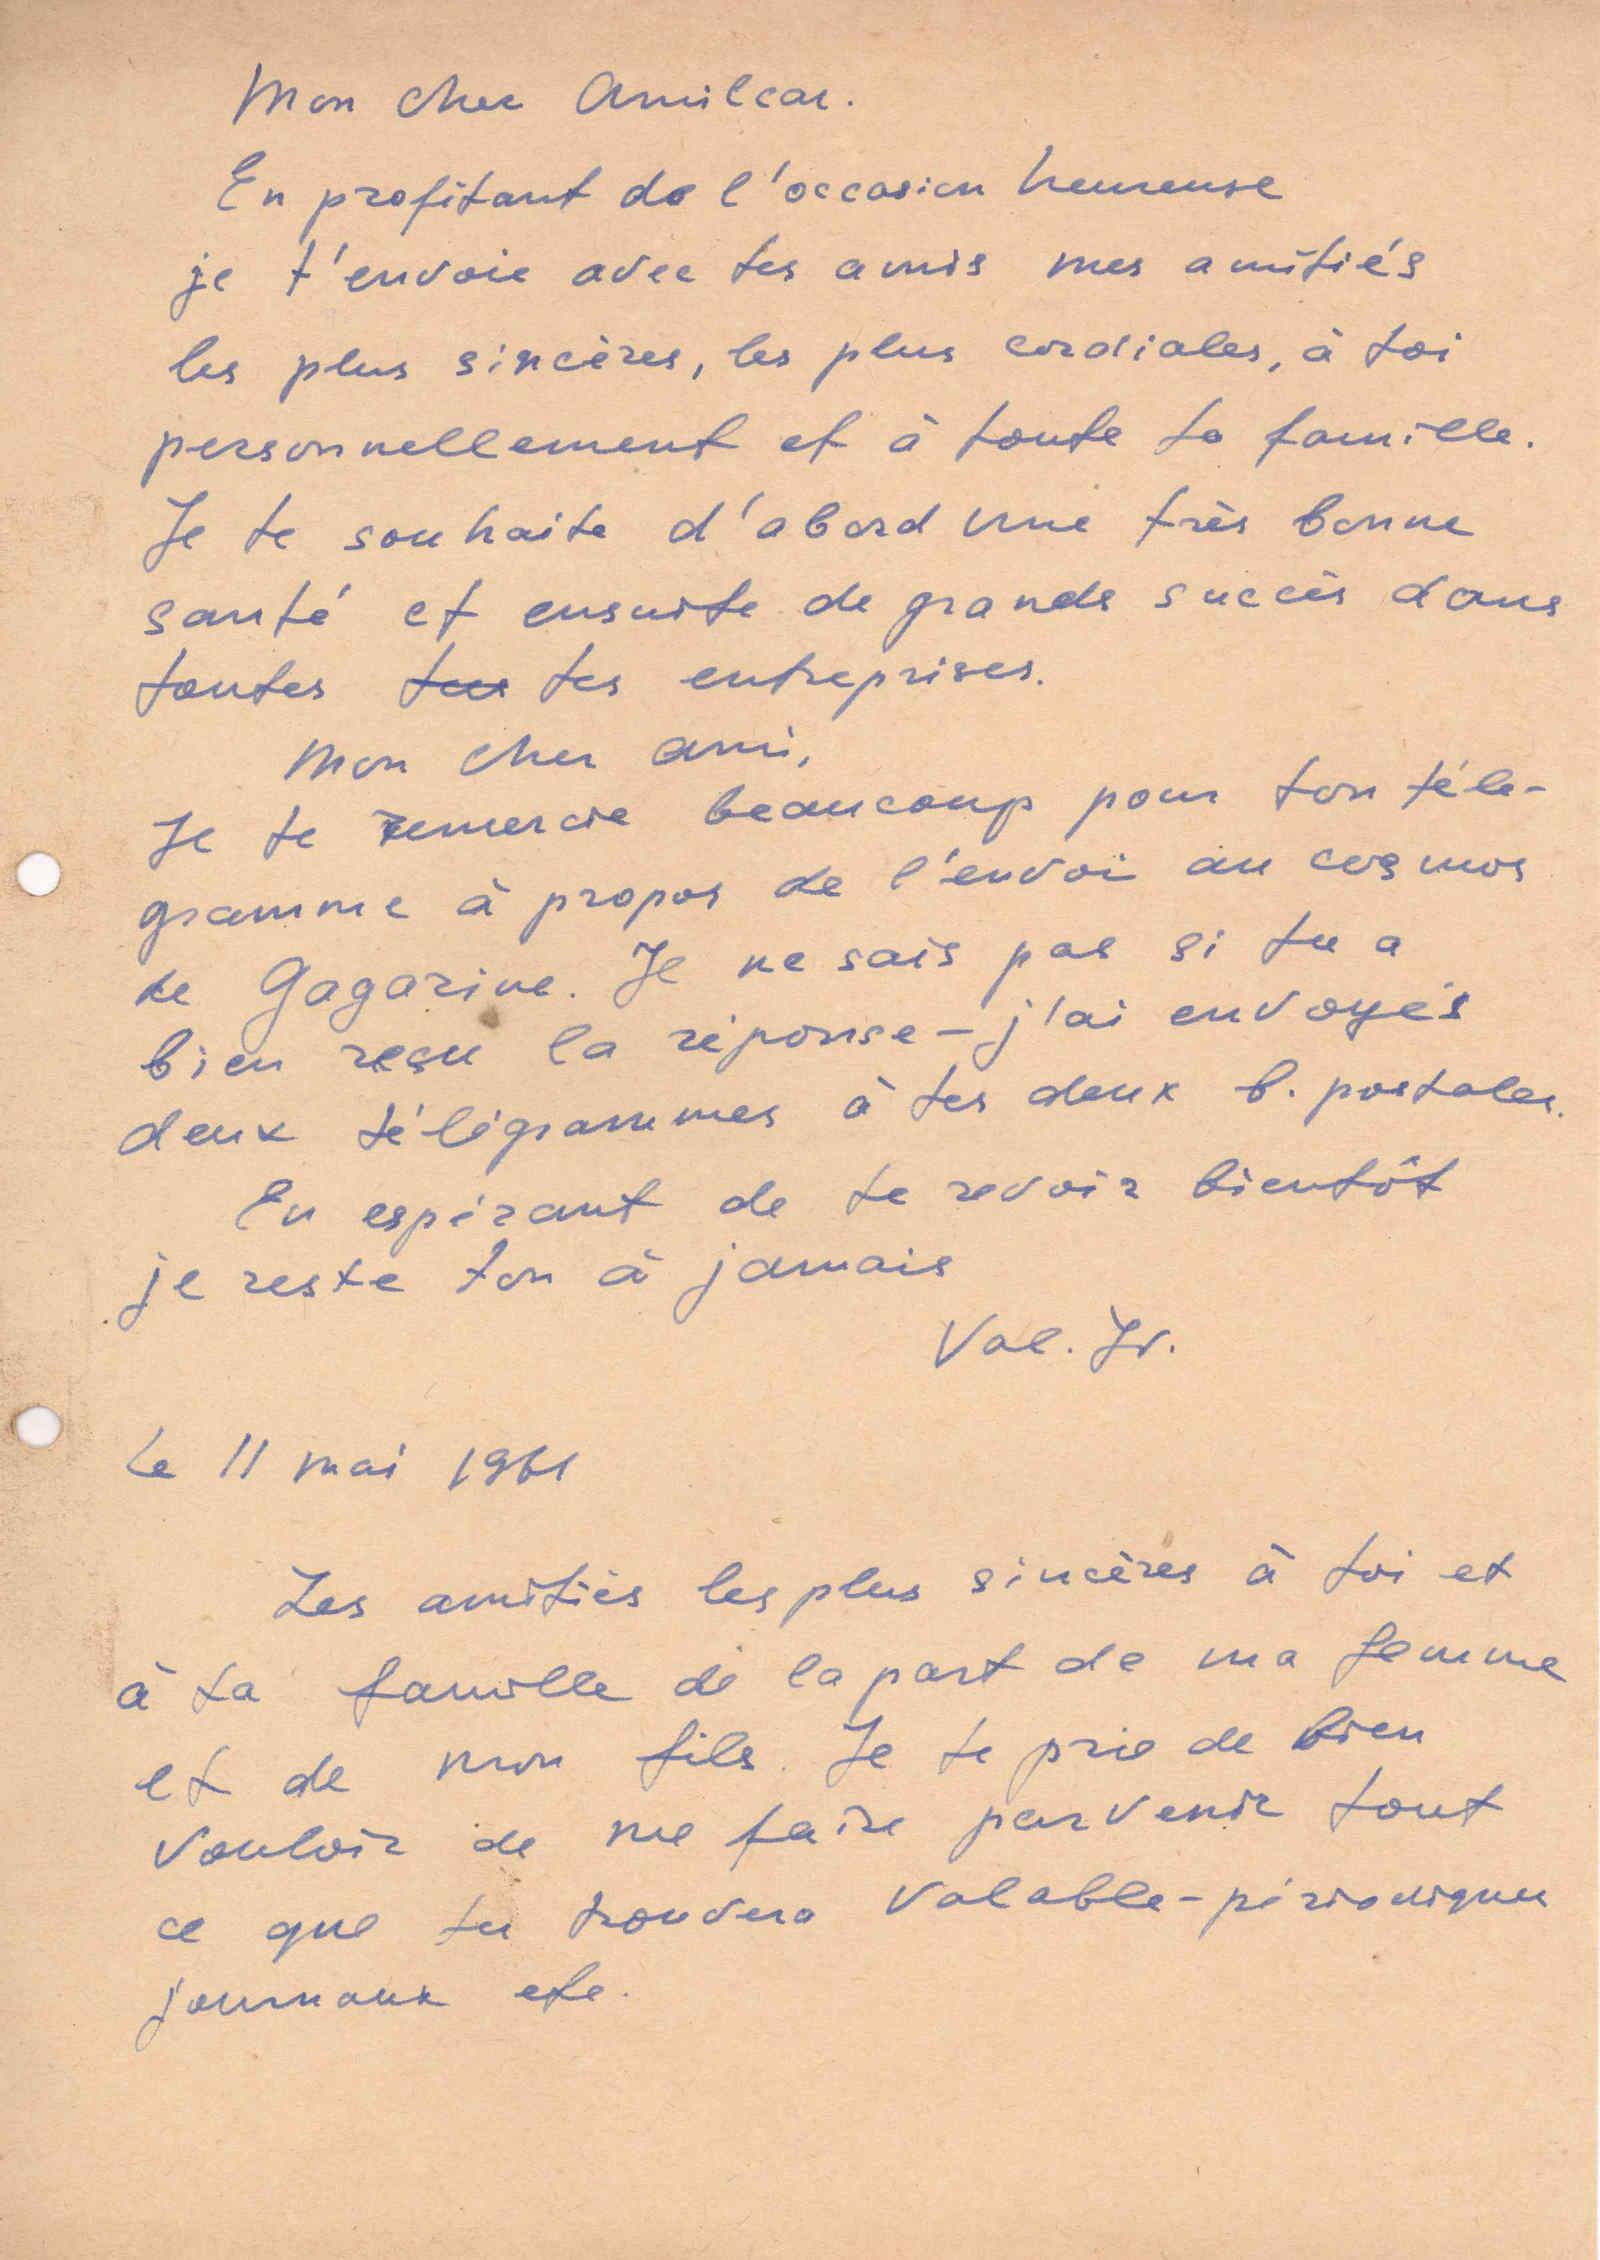 Mon cher Amilcar.
En profitant de l'occasion heureuse
je t'envoie avec tes amis mes amitiés
les plus sincères, les plus cordiales, à toi
personnellement et à toute ta famille.
Je te souhaite d'abord une très bonne
santé et ensuite de grands succès dans
toutes tes entreprises.
Mon cher ami,
Je te remercie beaucoup pour ton téle-
gramme à propos de l'envoi au cosmos
de Gagarine. Je ne sais pas si tu a
bien reçu la réponse – j'ai envoyés
deux télégrammes à tes deux b. postales.
En espérant de te revoir bientôt
je reste ton à jamais
Val. Iv.
Le 11 mai 1961
Les amitiés les plus sincères à toi et
à ta famille de la part de ma femme
et de mon fils. Je te prie de bien
vouloir de me faire parvenir tout
ce que tu trouvera valable – périodiques
journaux etc.